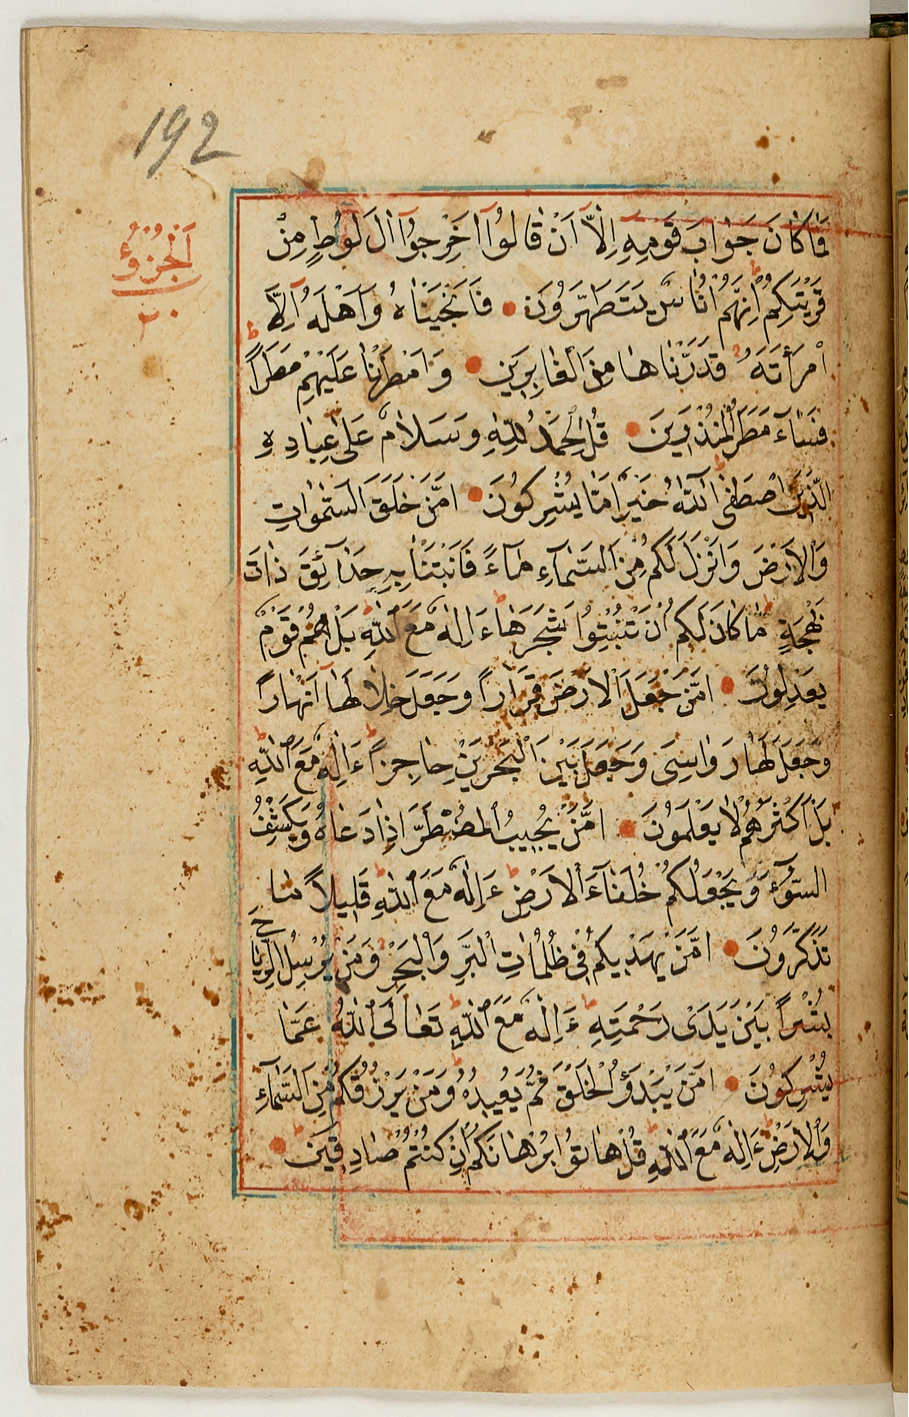 192
اَلْجُزْؤُ
٢٠
فَمَا كَانَ جَوَابَ قَوْمِهِ اِلَّا اَنْ قَالُوا اَخْرِجُوا اٰلَ لُوطٍ مِنْ
قَرْيَتِكُمْ اِنَّهُمْ اُنَاسٌ يَتَطَهَّرُونَ فَاَنْجَيْنَاهُ وَاَهْلَهُ اِلَّا
امْرَأَتَهُ قَدَّرْنَاهَا مِنَ الْغَابِرِينَ وَاَمْطَرْنَا عَلَيْهِمْ مَطَرًا
فَسَاءَ مَطَرُ الْمُنْذَرِينَ قُلِ الْحَمْدُ لِلّٰهِ وَسَلَامٌ عَلٰى عِبَادِهِ
الَّذِينَ اصْطَفٰى آللّٰهُ خَيْرٌ اَمَّا يُشْرِكُونَ اَمَّنْ خَلَقَ السَّمٰوَاتِ
وَالْاَرْضَ وَاَنْزَلَ لَكُمْ مِنَ السَّمَاءِ مَاءً فَاَنْبَتْنَا بِهِ حَدَائِقَ ذَاتَ
بَهْجَةٍ مَا كَانَ لَكُمْ اَنْ تُنْبِتُوا شَجَرَهَا ءَاِلٰهٌ مَعَ اللّٰهِ بَلْ هُمْ قَوْمٌ
يَعْدِلُونَ اَمَّنْ جَعَلَ الْاَرْضَ قَرَارًا وَجَعَلَ خِلَالَهَا اَنْهَارًا
وَجَعَلَ لَهَا رَوَاسِىَ وَجَعَلَ بَيْنَ الْبَحْرَيْنِ حَاجِزًا ءَاِلٰهٌ مَعَ اللّٰهِ
بَلْ اَكْثَرُهُمْ لَا يَعْلَمُونَ اَمَّنْ يُجِيبُ الْمُضْطَرَّ اِذَا دَعَاهُ وَيَكْشِفُ
السُّوءَ وَيَجْعَلُكُمْ خُلَفَاءَ الْاَرْضِ ءَاِلٰهٌ مَعَ اللّٰهِ قَلِيلًا مَا
تَذَكَّرُونَ اَمَّنْ يَهْدِيكُمْ فِى ظُلُمَاتِ الْبَرِّ وَالْبَحْرِ وَمَنْ يُرْسِلُ الرِّيَاحَ
بُشْرًا بَيْنَ يَدَىْ رَحْمَتِهِ ءَاِلٰهٌ مَعَ اللّٰهِ تَعَالَى اللّٰهُ عَمَّا
يُشْرِكُونَ اَمَّنْ يَبْدَؤُ الْخَلْقَ ثُمَّ يُعِيدُهُ وَمَنْ يَرْزُقُكُمْ مِنَ السَّمَاءِ
وَالْاَرْضِ ءَاِلٰهٌ مَعَ اللّٰهِ قُلْ هَاتُوا بُرْهَانَكُمْ اِنْ كُنْتُمْ صَادِقِينَ